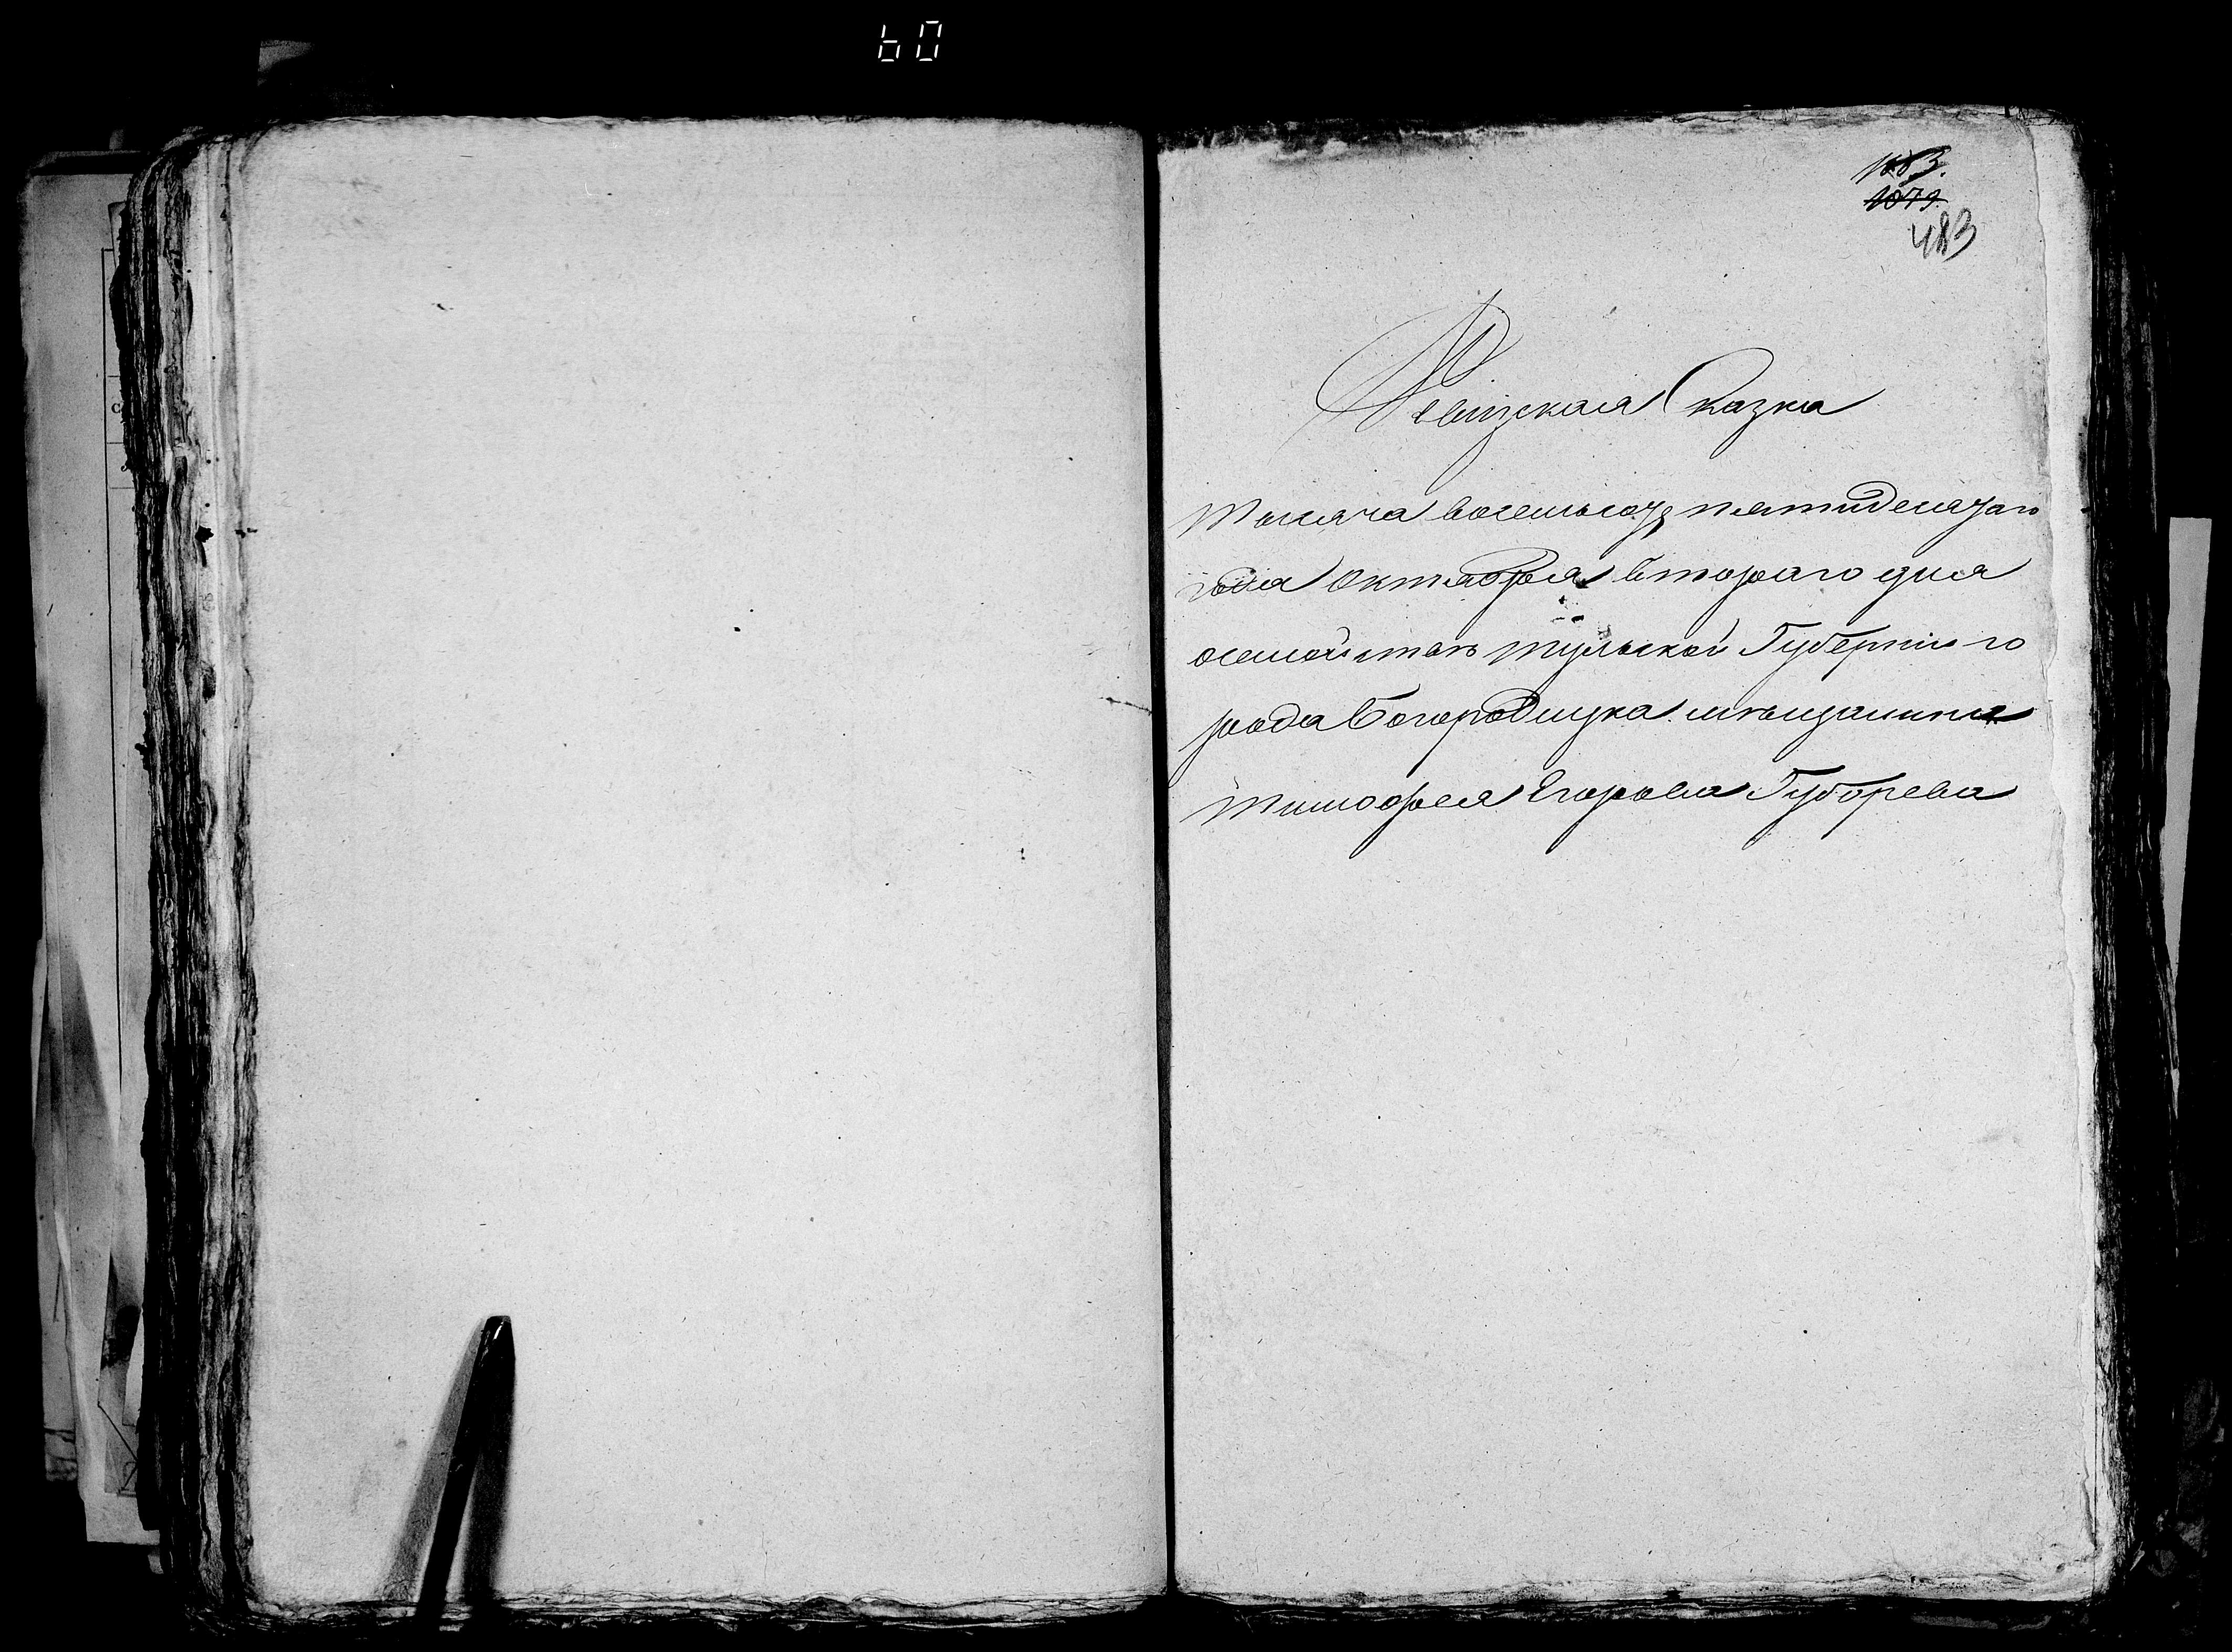 60
1083.
1079.
483
Ревизская Сказка
Тысяча восемьсотъ пятидесятаго
года Октября втораго дня
осемействѣ тульской Губерніи го
рода Богородицка мѣщанина
Тимофея Егорова Губорева